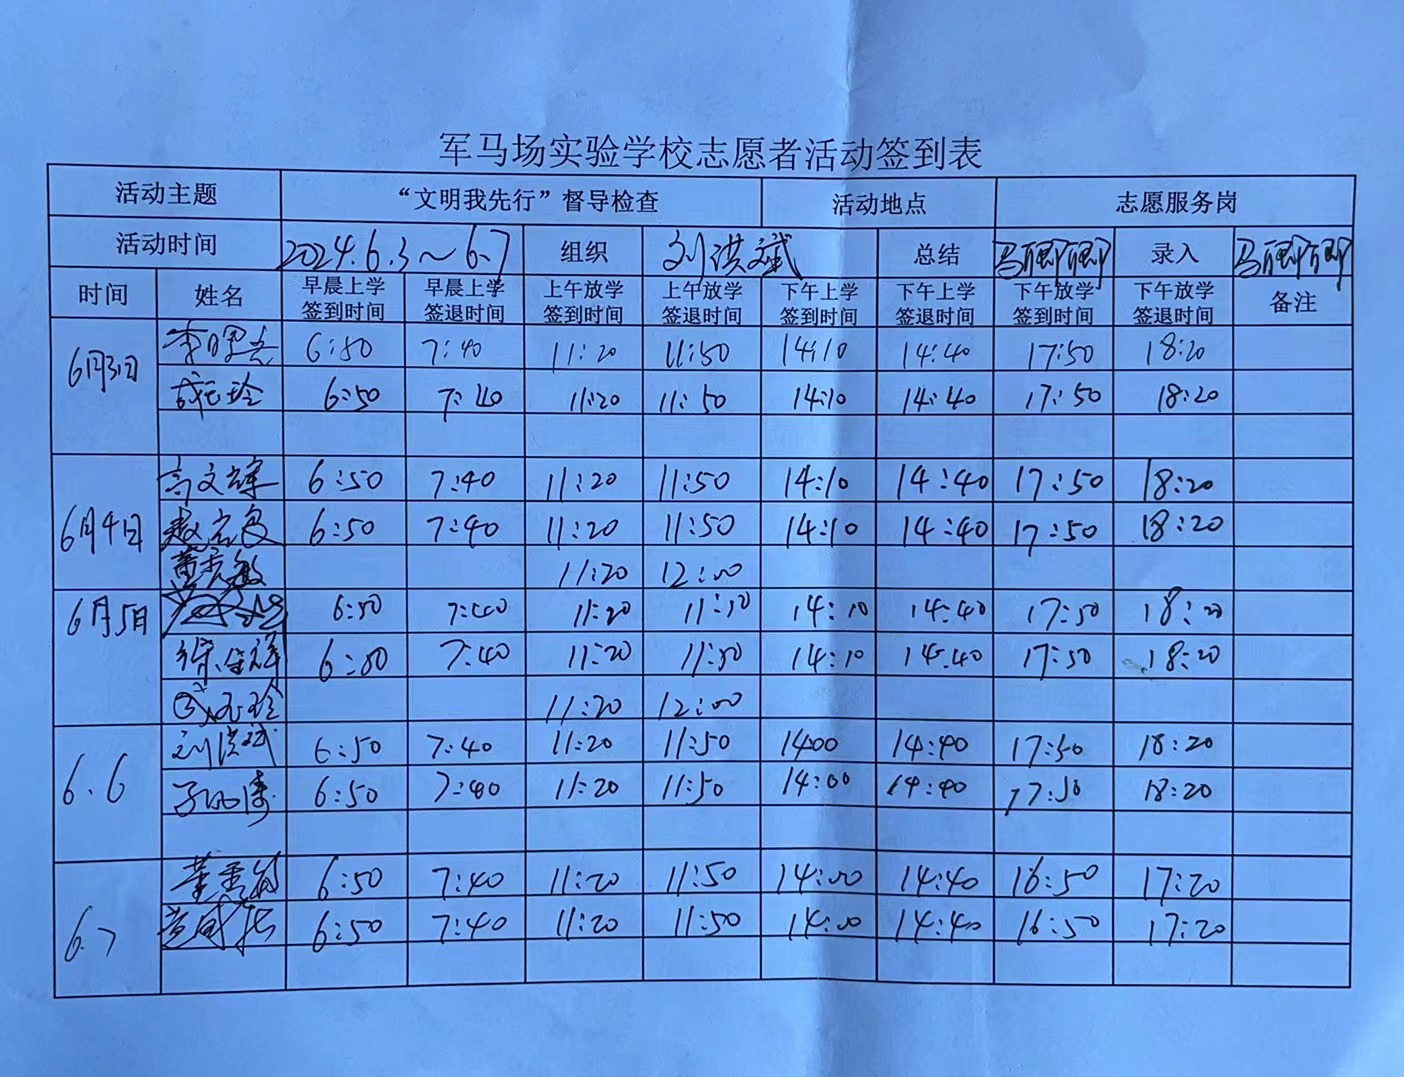 军马场实验学校志愿者活动签到表
活动主题 “文明我先行”督导检查 活动地点 志愿服务岗
活动时间 2024.6.3～6.7 组织 刘洪斌 总结 马 录入 马
时间 姓名 早晨上学签到时间 早晨上学签退时间 上午放学签到时间 上午放学签退时间 下午上学签到时间 下午上学签退时间 下午放学签到时间 下午放学签退时间 备注
6月3日 李 6:50 7:40 11:20 11:50 14:10 14:40 17:50 18:20
玲 6:50 7:40 11:20 11:50 14:10 14:40 17:50 18:20
6月4日 高文 6:50 7:40 11:20 11:50 14:10 14:40 17:50 18:20
赵 6:50 7:40 11:20 11:50 14:10 14:40 17:50 18:20
董秀敏 11:20 12:00
6月5日 6:50 7:40 11:20 11:50 14:10 14:40 17:50 18:20
徐 祥 6:50 7:40 11:20 11:50 14:10 14:40 17:50 18:20
玲 11:20 12:00
6.6 刘洪斌 6:50 7:40 11:20 11:50 14:00 14:40 17:50 18:20
涛 6:50 7:40 11:20 11:50 14:00 14:40 17:50 18:20
6.7 董秀敏 6:50 7:40 11:20 11:50 14:00 14:40 16:50 17:20
6:50 7:40 11:20 11:50 14:00 14:40 16:50 17:20